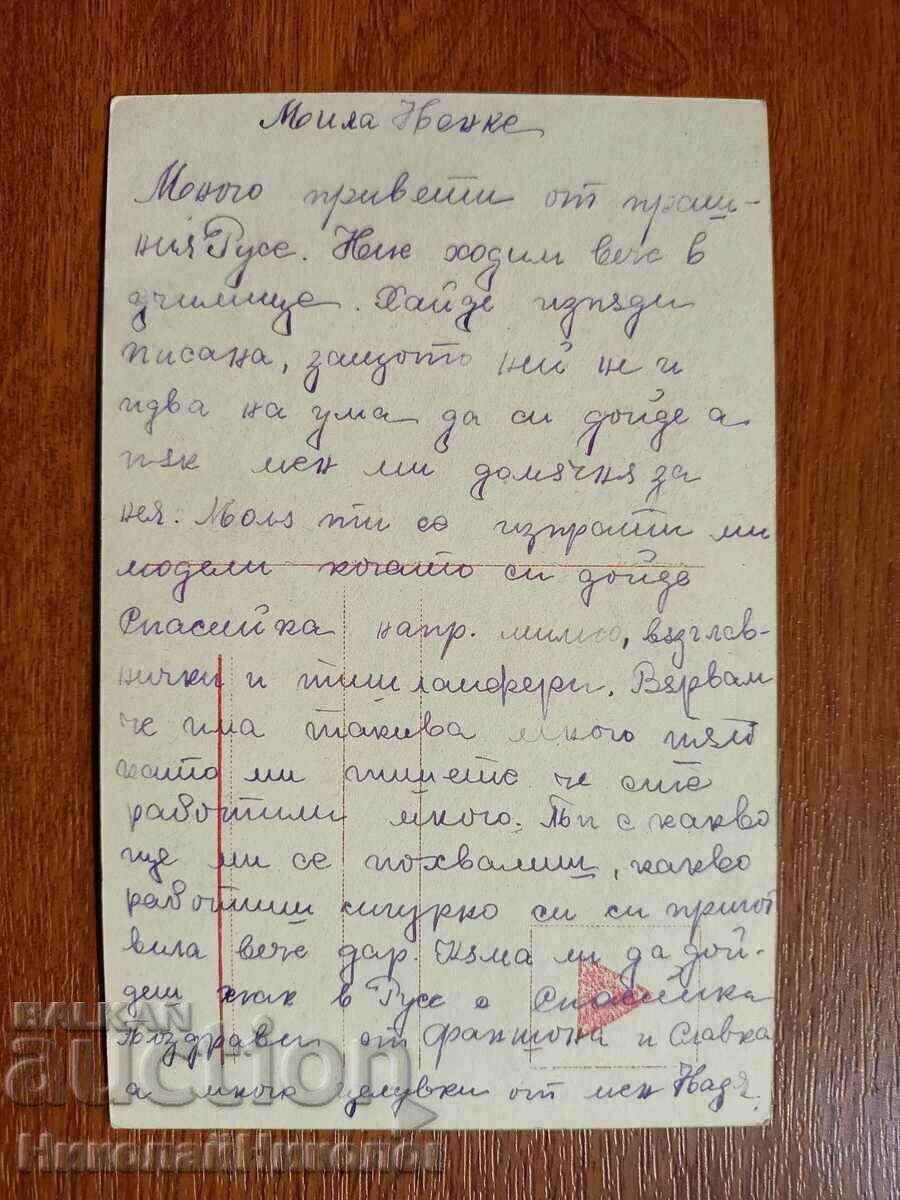 Мила Ненке
Много привети от праш-
ния Русе. Ние ходим вече в
училище. Хайде изпъди
писана, защото ней не и
идва на ума да си дойде а
пък мен ми домъчня за
нея. Моля ти се изпрати ми
модели когато си дойде
Спасийка напр. мильо, възглав-
нички и тишлайфери. Вярвам
че има такива много тъй
като ми пишете че сте
работили много. Ти с какво
ще ми се похвалиш, какво
работиш сигурно си си пригот
вила вече дар. Няма ли да дой-
деш пак в Русе с Спасийка
Поздрави от Фантони и Славка
а много целувки от мен Надя.
BALKAN
auction
НиколайНиколов